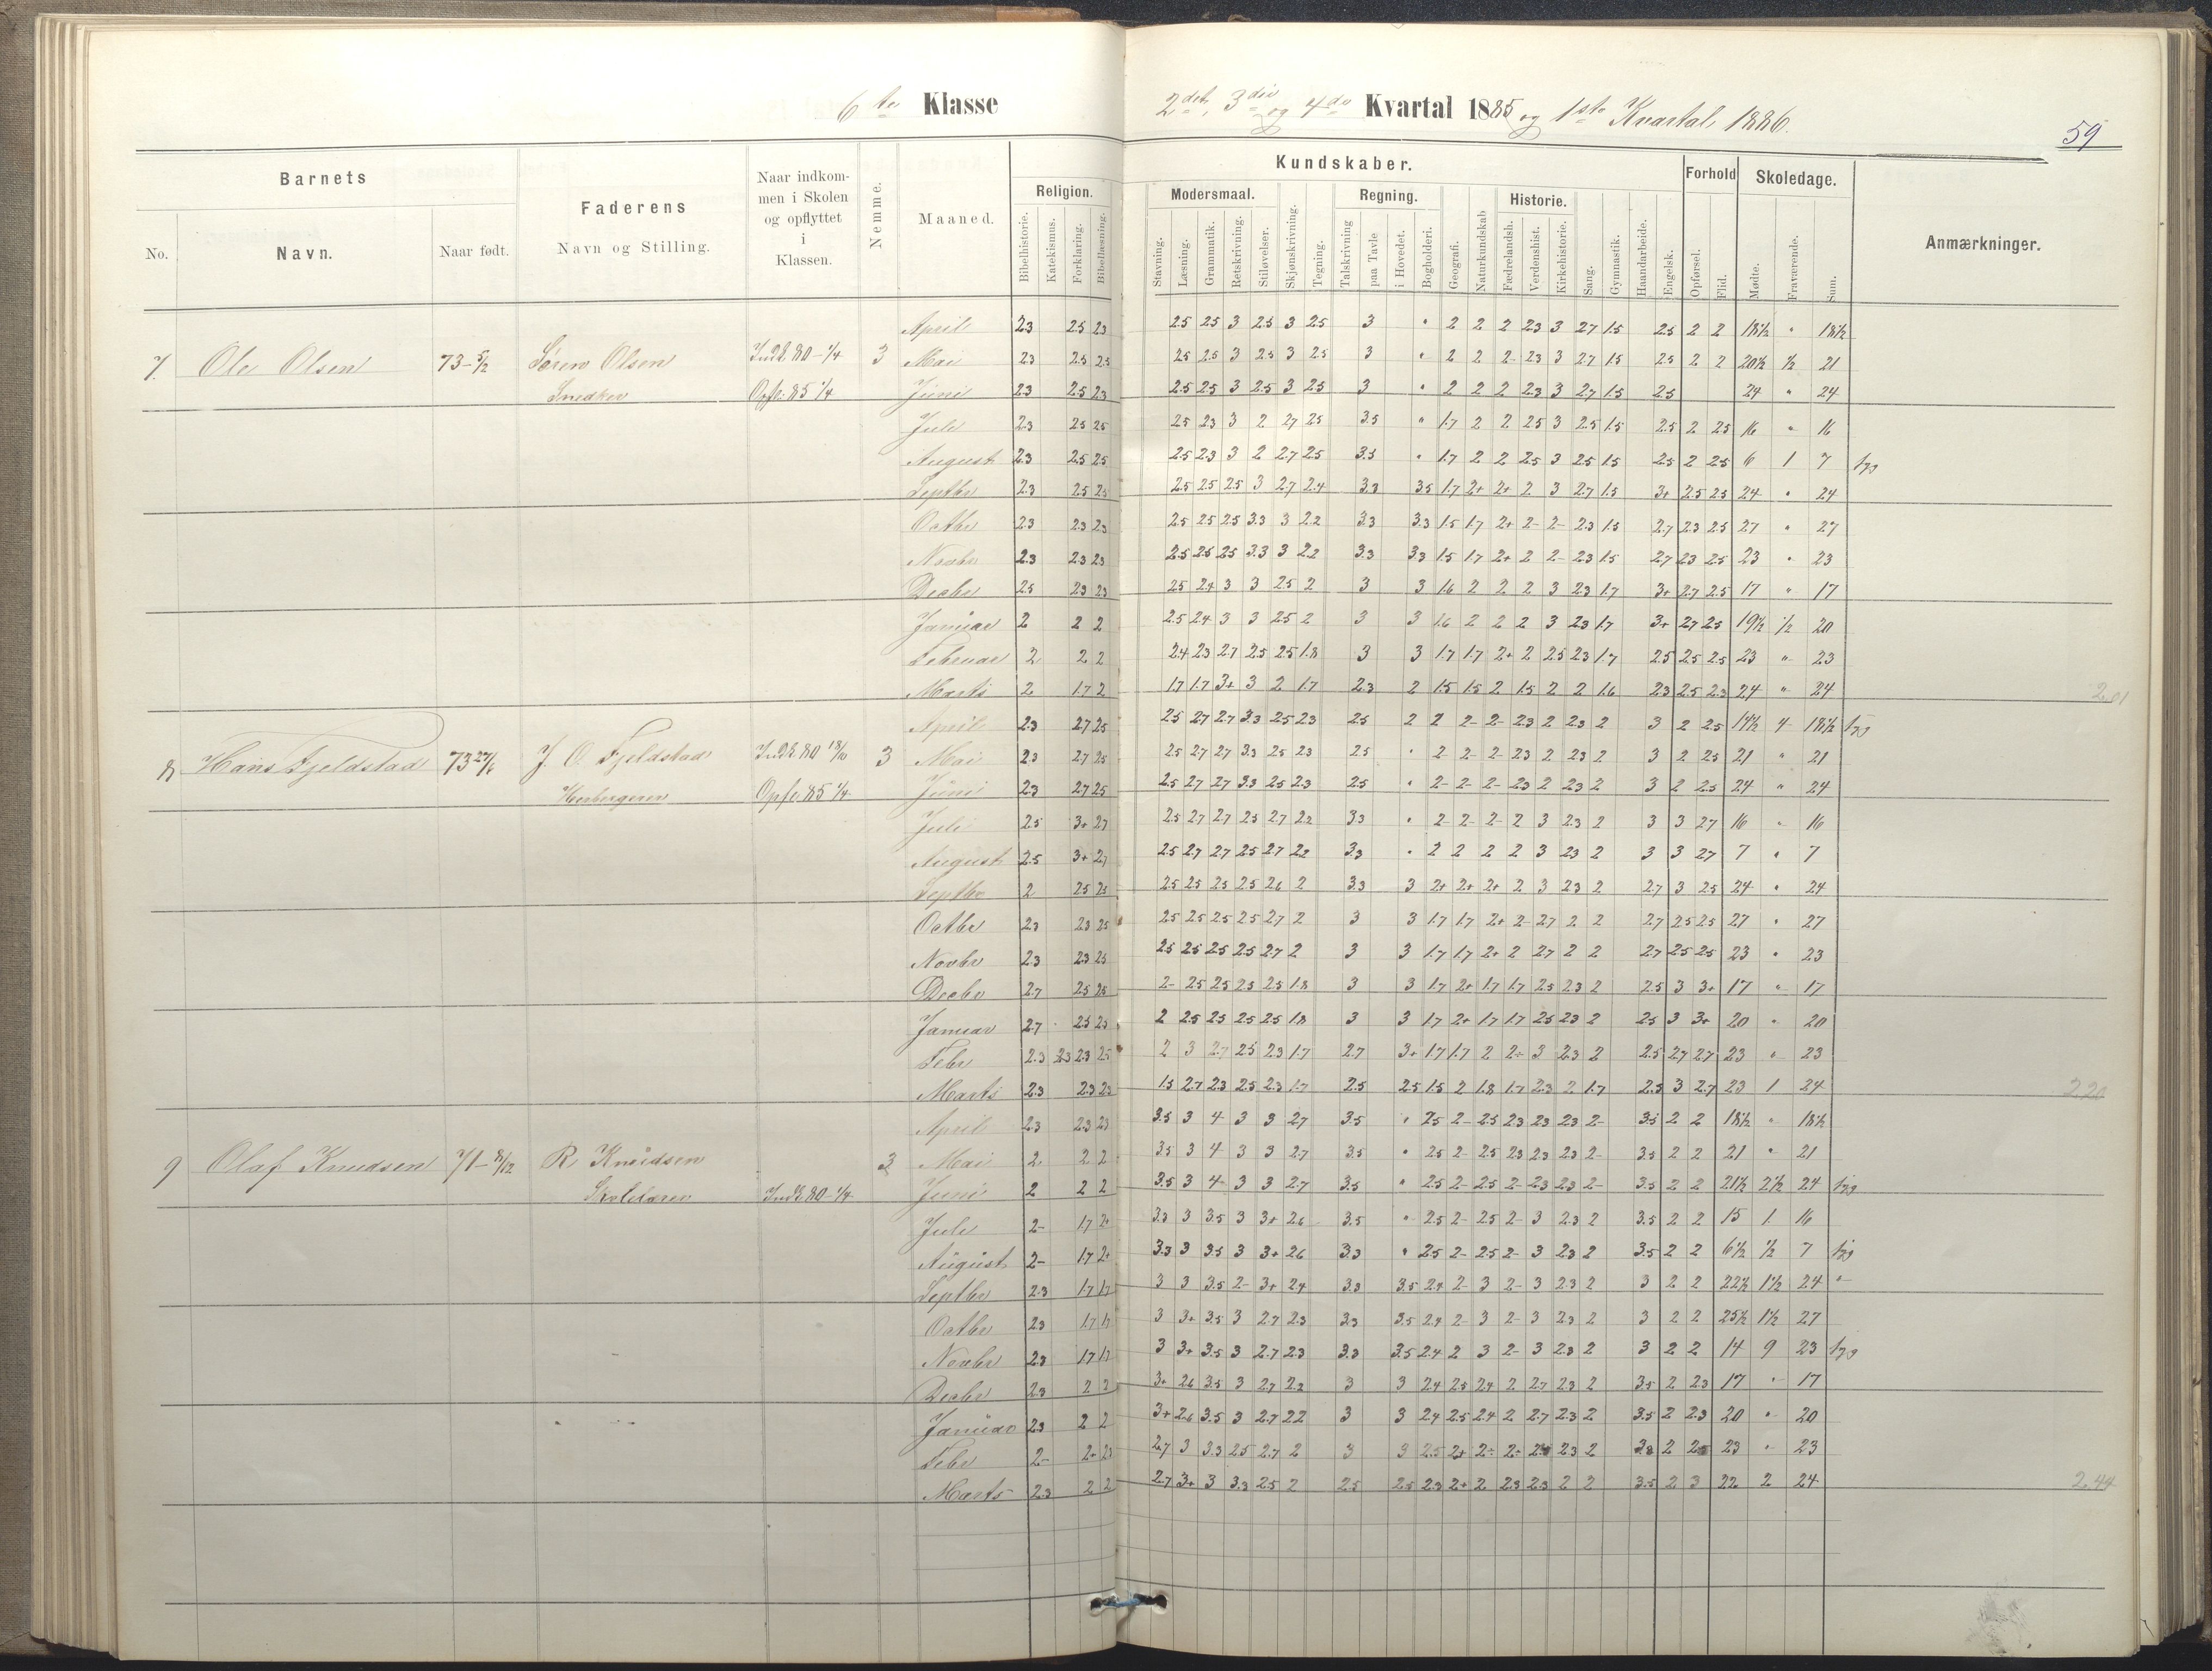 6te Klasse
2det, 3die og 4de Kvartal 1885 og 1ste Kvartal 1886.
59
Barnets
Faderens
Naar indkom-
men i Skolen
og opflyttet
i
Klassen.
Nemme.
Maaned.
Religion.
Kundskaber.
Forhold
Skoledage.
Anmærkninger.
Modersmaal.
Regning.
Historie.
No.
Navn.
Naar født.
Navn og Stilling.
Bibelhistorie.
Katekismus.
Forklaring.
Bibellæsning.
Stavning.
Læsning.
Grammatik.
Retskrivning.
Stiløvelser.
Skjønskrivning.
Tegning.
Talskrivning
paa Tavle
i Hovedet.
Bogholderi.
Geografi.
Naturkundskab
Fædrelandsh.
Verdenshist.
Kirkehistorie.
Sang.
Gymnastik.
Haandarbeide.
Engelsk.
Opførsel.
Flid.
Mødte.
Fraværende.
Sum.
April 2.3 2.5 2.3 2.5 2.5 3 2.5 3 2.5 3 " 2 2 2 2.3 3 2.7 1.5 2.5 2 2 18½ " 18½
7. Ole Olsen 73-5/2 Søren Olsen Indk. 80-1/4 3 Mai 2.3 2.5 2.5 2.5 2.5 3 2.5 3 2.5 3 " 2 2 2- 2.3 3 2.7 1.5 2.5 2 2 20½ ½ 21
Snedker Opfl. 85 1/4 Juni 2.3 2.5 2.3 2.5 2.5 3 2.5 3 2.5 3 " 2 2 2 2.3 3 2.7 1.5 2.5 24 " 24
Juli 2.3 2.5 2.5 2.5 2.3 3 2 2.7 2.5 3.5 " 1.7 2 2 2.5 3 2.5 1.5 2.5 2 2.5 16 " 16
August 2.3 2.5 2.5 2.5 2.3 3 2 2.7 2.5 3.3 " 1.7 2 2 2.5 3 2.5 1.5 2.5 2 2.5 6 1 7
Septbr 2.3 2.5 2.5 2.5 2.5 2.5 3 2.7 2.4 3.3 3.5 1.7 2+ 2+ 2 3 2.7 1.5 3+ 2.5 2.5 24 " 24
Octbr 2.3 2.3 2.3 2.5 2.5 2.5 3.3 3 2.2 3.3 3.3 1.5 1.7 2+ 2- 2- 2.3 1.5 2.7 2.3 2.5 27 " 27
Novbr 2.3 2.3 2.3 2.5 2.5 2.5 3.3 3 2.2 3.3 3.3 1.5 1.7 2+ 2 2- 2.3 1.5 2.7 2.3 2.5 23 " 23
Decbr 2.5 2.3 2.3 2.5 2.4 3 3 2.5 2 3 3 1.6 2 2 2 3 2.3 1.7 3+ 2.7 2.5 17 " 17
Januar 2 2 2 2.5 2.4 3 3 2.5 2 3 3 1.6 2 2 2 3 2.3 1.7 3+ 2.7 2.5 19½ ½ 20
Februar 2 2 2 2.4 2.3 2.7 2.5 2.5 1.8 3 3 1.7 1.7 2+ 2 2.5 2.3 1.7 2.5 2.5 2.5 23 " 23
Marts 2 1.7 2 1.7 1.7 3+ 3 2 1.7 2.3 2 1.5 1.5 2 1.5 2 2 1.6 2.3 2.5 2.3 24 " 24 2.01
April 2.3 2.7 2.5 2.5 2.7 2.7 3.3 2.5 2.3 2.5 2 2 2- 2- 2.3 2 2.3 2 3 2 2.5 14½ 4 18½
8 Hans Fjeldstad 73 27/6 J. O. Fjeldstad Indk. 80 18/10 3 Mai 2.3 2.7 2.5 2.5 2.7 2.7 3.3 2.5 2.3 2.5 " 2 2- 2- 2.3 2 2.3 2 3 2 2.5 21 " 21
Herbergerer Opfl. 85 1/4 Juni 2.3 2.7 2.5 2.5 2.7 2.7 3.3 2.5 2.3 2.5 " 2- 2- 2- 2.3 2 2.3 2 3 2 2.5 24 " 24
Juli 2.5 3+ 2.7 2.5 2.7 2.7 2.5 2.7 2.2 3.3 " 2- 2- 2- 2 3 2.3 2 3 3 2.7 16 " 16
August 2.5 3+ 2.7 2.5 2.7 2.7 2.5 2.7 2.2 3.3 " 2 2 2 2 3 2.3 2 3 3 2.7 7 " 7
Septbr 2 2.5 2.5 2.5 2.5 2.5 2.5 2.6 2 3.3 3 2+ 2+ 2+ 2 3 2.3 2 2.7 3 2.5 24 " 24
Octbr 2.3 2.3 2.5 2.5 2.5 2.5 2.5 2.7 2 3 3 1.7 1.7 2+ 2- 2.7 2 2 2.7 2.5 2.5 27 " 27
Novbr 2.3 2.3 2.5 2.5 2.5 2.5 2.5 2.7 2 3 3 1.7 1.7 2+ 2 2.7 2 2 2.7 2.5 2.5 23 " 23
Decbr 2.7 2.5 2.5 2- 2.5 2.5 2.5 2.5 1.8 3 3 1.7 2+ 1.7 1.7 2.5 2.3 2 2.5 3 3+ 17 " 17
Januar 2.7 2.5 2.5 2 2.5 2.5 2.5 2.5 1.8 3 3 1.7 2+ 1.7 1.7 2.5 2.3 2 2.5 3 3+ 20 " 20
Febr 2.3 2.3 2.3 2.5 2 3 2.7 2.5 2.3 1.7 2.7 3+ 1.7 1.7 2 2÷ 3 2.3 2 2.5 2.7 2.7 23 " 23
Marts 2.3 2.3 2.3 1.5 2.7 2.3 2.5 2.3 1.7 2.5 2.5 1.5 2 1.8 1.7 2.3 2 1.7 2.3 3 2.7 23 1 24 2.20
April 2.3 2.3 2.3 3.5 3 4 3 3 2.7 3.5 " 2.5 2- 2.5 2.3 2.3 2.3 2- 3.5 2 2 18½ " 18½
9 Olaf Knudsen 71-8/12 R. Knudsen 3 Mai 2 2 2 3.5 3 4 3 3 2.7 3.5 " 2.5 2- 2.5 2.3 2.3 2.3 2- 3.5 2 2 21 " 21
Indk. 80-1/4 Juni 2 2 2 3.5 3 4 3 3 2.7 3.5 " 2.5 2- 2.5 2- 2.3 2.3 2- 3.5 2 2 21½ 2½ 24
Juli 2- 1.7 2+ 3.3 3 3.5 3 3+ 2.6 3.5 " 2.5 2- 2.5 2- 3 2.3 2 3.5 2 2 15 1 16
August 2- 1.7 2+ 3.3 3 3.5 3 3+ 2.6 3.3 " 2.5 2- 2.5 2- 3 2.3 2 3.5 2 2 6½ ½ 7
Septbr 2.3 1.7 1.7 3 3 3.5 2- 3+ 2.4 3.3 3.5 2.4 2- 3 2- 3 2.3 2 3 2 2 22½ 1½ 24 "
Octbr 2.3 1.7 1.7 3 3+ 3.5 3 2.7 2.3 3.3 3.5 2.4 2- 3 2- 3 2.3 2 3 2 2 25½ 1½ 27
Novbr 2.3 1.7 1.7 3 3+ 3.5 3 2.7 2.3 3.3 3.5 2.4 2 3 2- 3 2.3 2 3 2 2 14 9 23
Decbr 2.3 2 2 3+ 2.6 3.5 3 2.7 2.2 3 3 2.4 2.5 2.4 2 2.7 2.3 2 3.5 2 2.3 17 " 17
Januar 2.3 2 2 3+ 2.6 3.5 3 2.7 2.2 3 3 2.4 2.5 2.4 2 2.7 2.3 2 3.5 2 2.3 20 " 20
Febr 2- 2+ 2.3 2.7 3 3.3 2.5 2.7 2 3 3 2.5 2+ 2÷ 2÷ 2.3 2 2 23 " 23
Marts 2.3 2 2 2.7 3+ 3 3.3 2.5 2 2.5 2.5 2.3 2+ 2 2.3 2.3 2 2 3.5 2 3 22 2 24 2.44